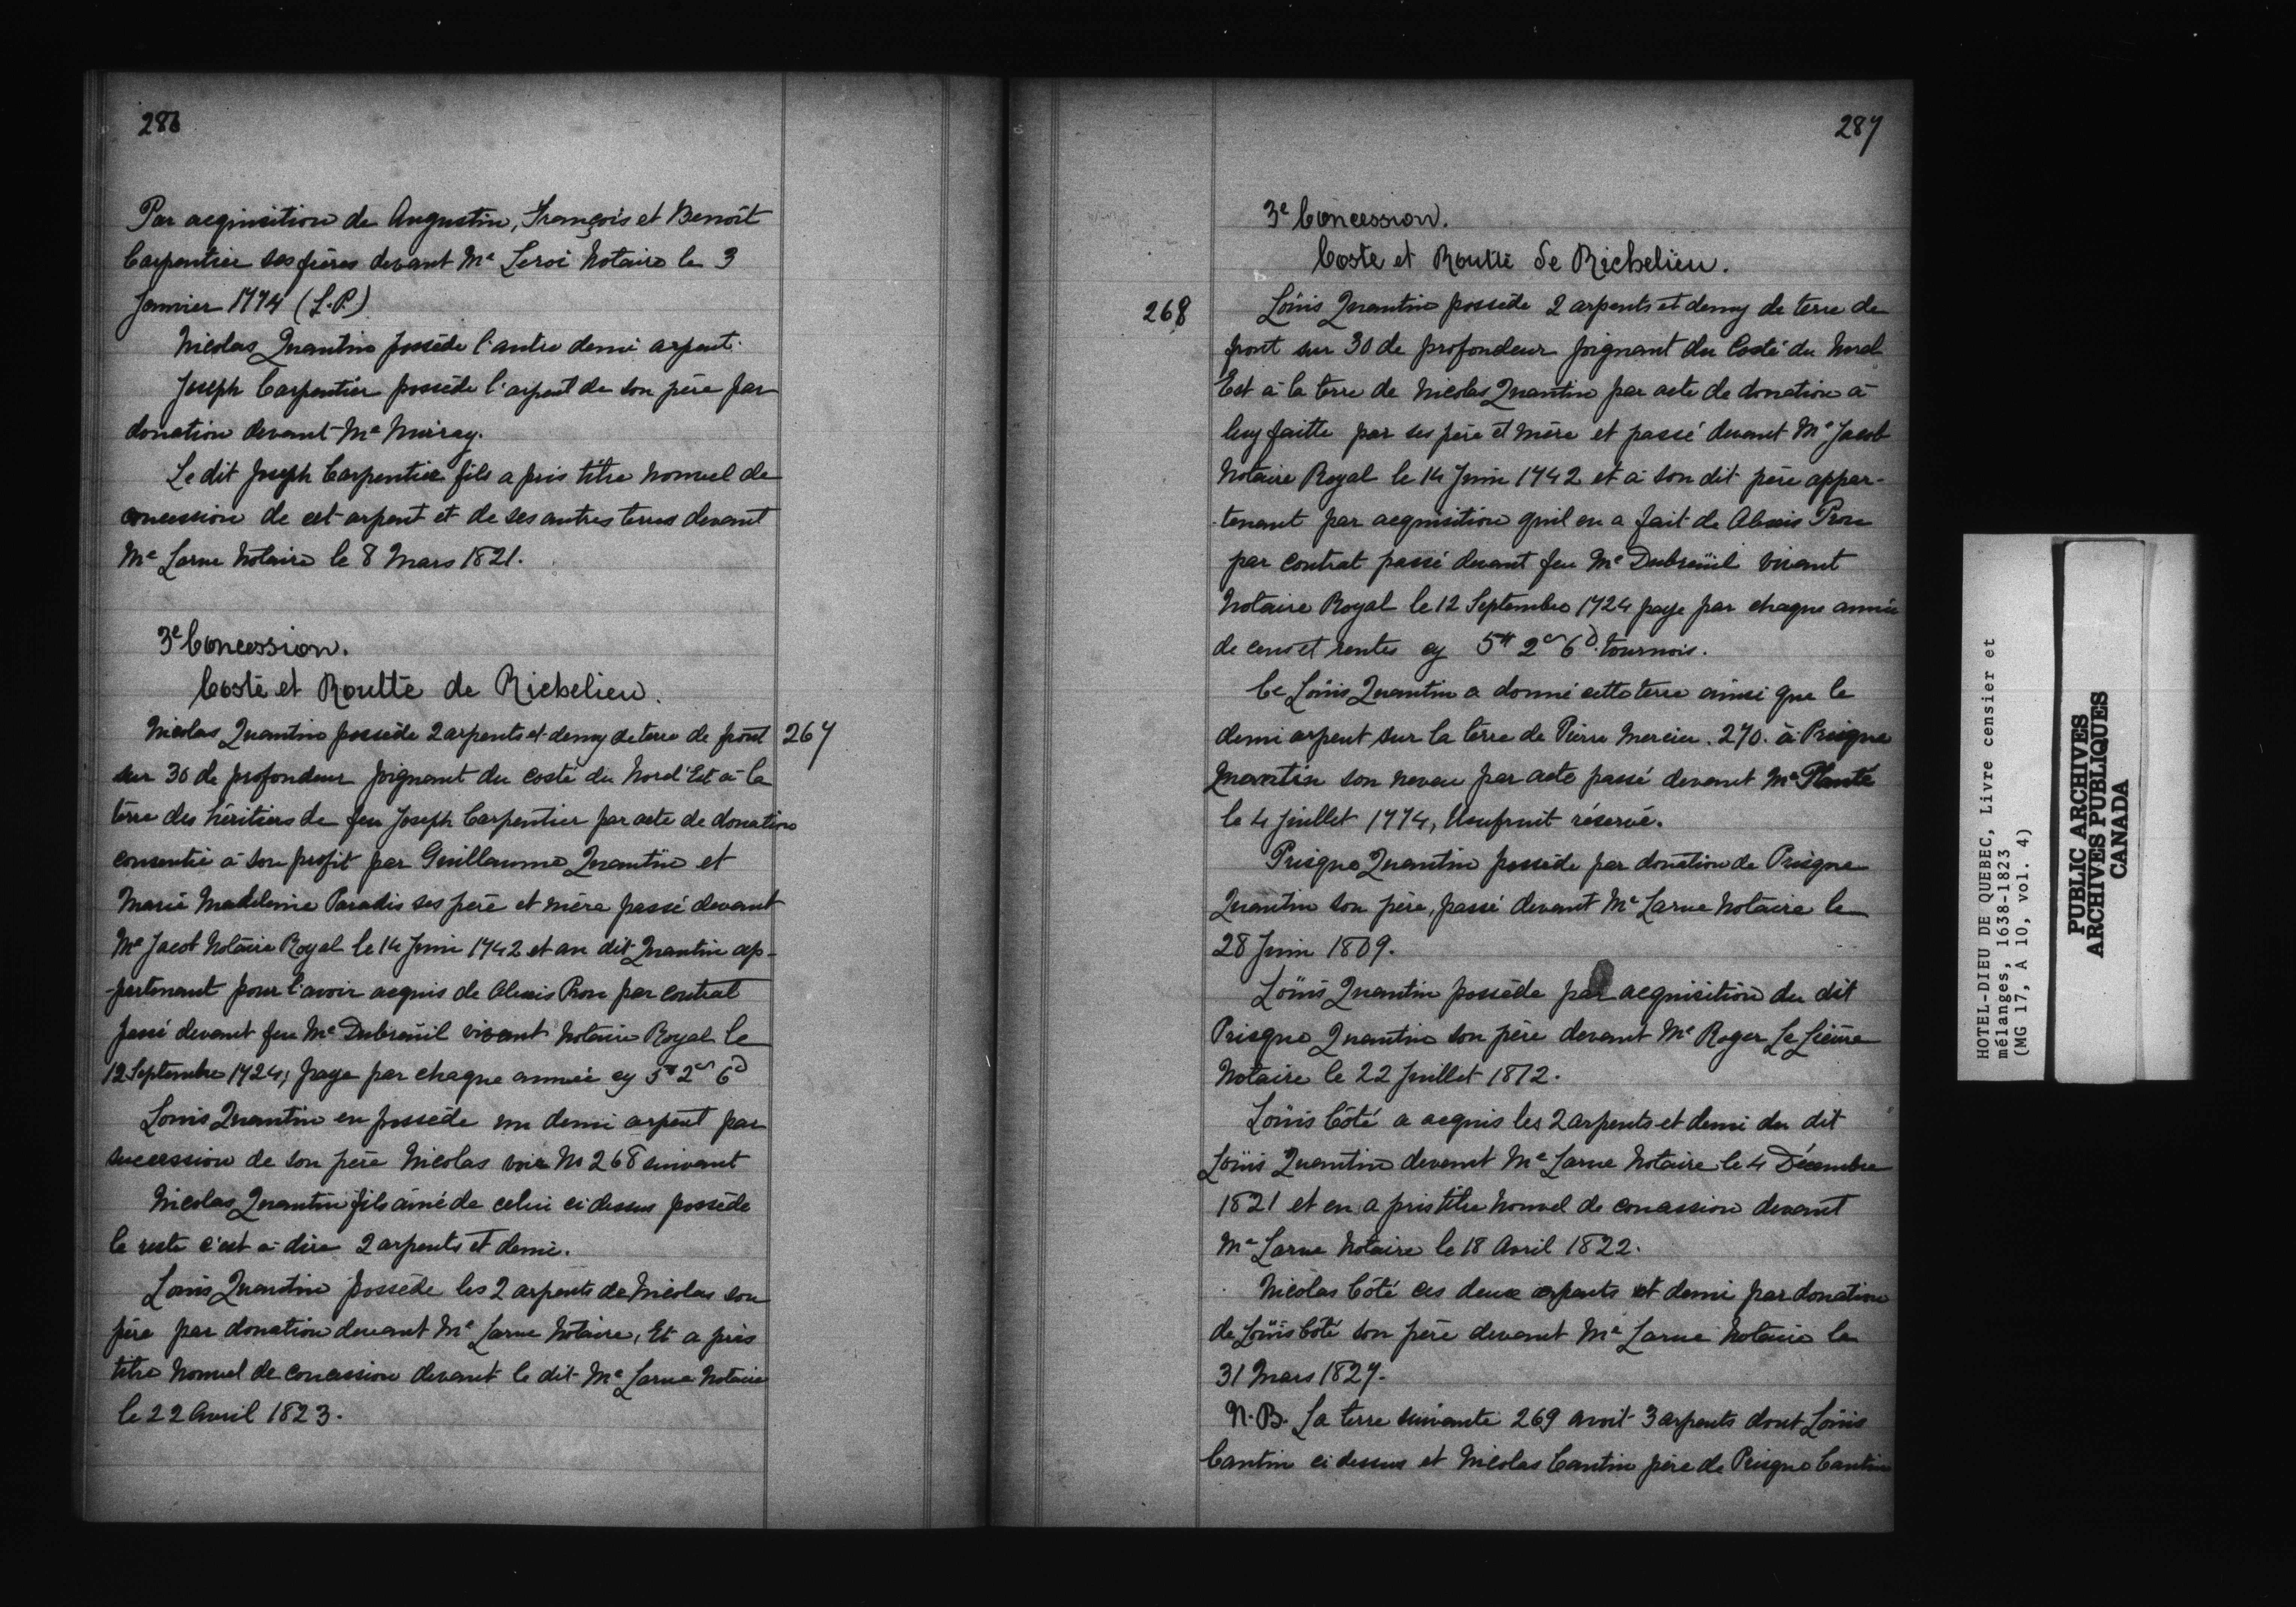 286
Par acquisition de Augustin, François et Benoît
Carpentier ses frères devant Me Leroi Notaire le 3
Janvier 1774 (L.P.)
Nicolas Quantin possède l'autre demi arpent.
Joseph Carpentier possède l'arpent de son père par
donation devant Me Murray.
Le dit Joseph Carpentier fils a pris titre nouvel de
concession de cet arpent et de ses autres terres devant
Me Larue Notaire le 8 Mars 1821.
3e Concession.
Coste et Routte de Richelieu.
Nicolas Quantin possède 2 arpents et demy de terre de front 267
sur 30 de profondeur joignant du costé du Nord'Est à la
terre des héritiers de feu Joseph Carpentier par acte de donation
consentie à son profit par Guillaume Quantin et
Marie Madeleine Paradis ses père et mère passé devant
Me Jacob Notaire Royal le 14 Juin 1742 et au dit Quantin ap-
-partenant pour l'avoir acquis de Alexis Prou par contrat
passé devant feu Me Dubreüil vivant Notaire Royal le
12 Septembre 1724; paye par chaque année cy 5tt 2s 6d
Louis Quantin en possède un demi arpent par
succession de son père Nicolas voir No 268 suivant
Nicolas Quantin fils ainé de celui ci dessus possède
le reste c'est à dire 2 arpents et demi.
Louis Quantin possède les 2 arpents de Nicolas son
père par donation devant Me Larue Notaire, Et a pris
titre nouvel de concession devant le dit Me Larue Notaire
le 22 Avril 1823.
287
3e Concession.
Coste et Routte de Richelieu.
268 Loüis Quantin possède 2 arpents et demy de terre de
front sur 30 de profondeur joignant du Costé du Nord
Est à la terre de Nicolas Quantin par acte de donation à
luy faitte par ses père et mère et passé devant Me Jacob
Notaire Royal le 14 Juin 1742 et à son dit père appar-
-tenant par acquisition quil en a fait de Alexis Prou
par contrat passé devant feu Me Dubreüil vivant
Notaire Royal le 12 Septembre 1724 paye par chaque année
de cens et rentes cy 5tt 2s 6d tournois.
Ce Loüis Quantin a donné cette terre ainsi que le
demi arpent sur la terre de Pierre Mercier. 270. à Prisque
Quantin son neveu par acte passé devant Me Planté
le 4 juillet 1774, Usufruit réservé.
Prisque Quantin possède par donation de Prisque
Quantin son père, passé devant Me Larue Notaire le
28 Juin 1809.
Loüis Quantin possède par acquisition du dit
Prisque Quantin son père devant Me Roger Le Lièvre
Notaire le 22 Juillet 1812.
Loüis Côté a acquis les 2 arpents et demi du dit
Loüis Quantin devant Me Larue Notaire le 4 Décembre
1821 et en a pris titre nouvel de concession devant
Me Larue Notaire le 18 Avril 1822.
Nicolas Côté ces deux arpents et demi par donation
de Loüis Côté son père devant Me Larue Notaire le
31 Mars 1827.
N.B. La terre suivante 269 avoit 3 arpents dont Loüis
Cantin ci dessus et Nicolas Cantin père de Prisque Cantin
HOTEL-DIEU DE QUEBEC, Livre censier et
mélanges, 1638-1823
(MG 17, A 10, vol. 4)
PUBLIC ARCHIVES
ARCHIVES PUBLIQUES
CANADA